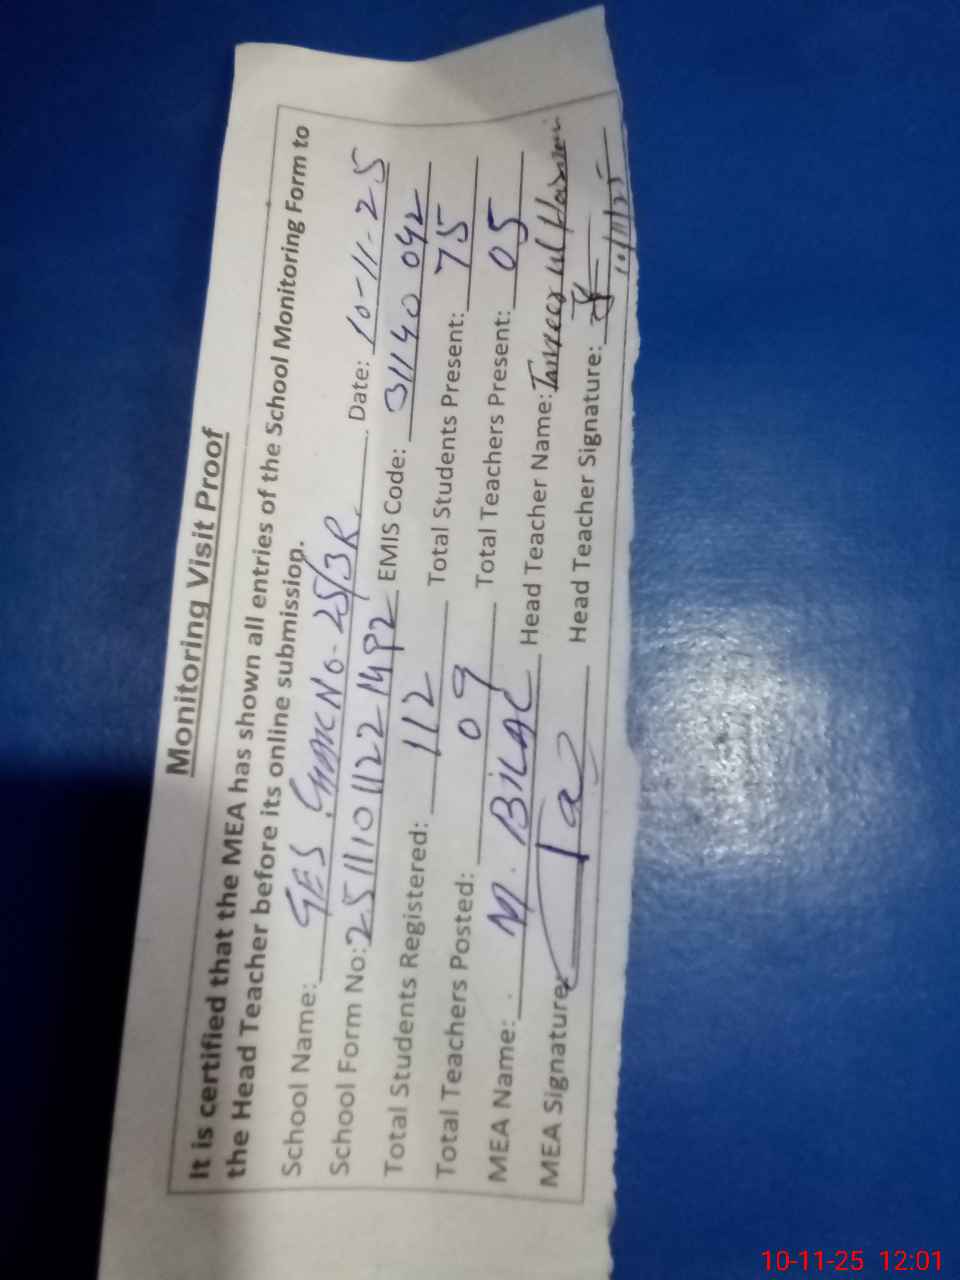 Monitoring Visit Proof
It is certified that the MEA has shown all entries of the School Monitoring Form to
the Head Teacher before its online submission.
School Name: GES Chak No-25/3R. Date: 10-11-25
School Form No: 251110112214 EMIS Code: 31140 042
Total Students Registered: 112 Total Students Present: 75
Total Teachers Posted: 09 Total Teachers Present: 05
MEA Name: M. BiLAL Head Teacher Name: ul
MEA Signature: Head Teacher Signature:
10/11/25
10-11-25 12:01